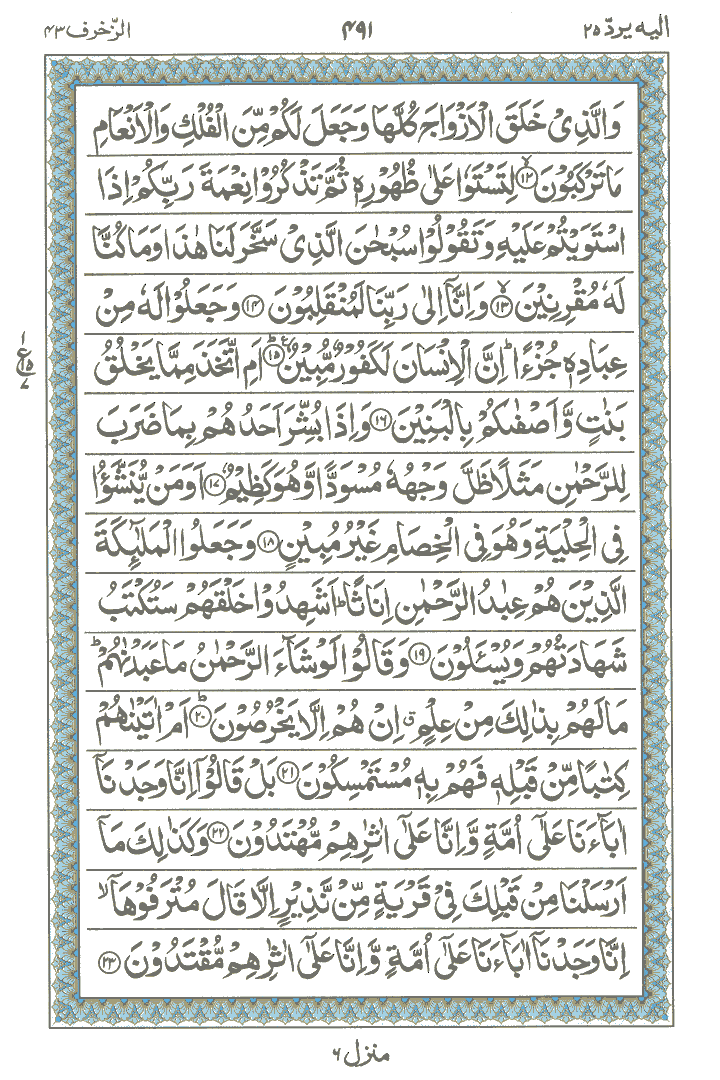 الیه یردّ ۲۵ ۴۹۱ الزّخرف ۴۳
وَالَّذِیْ خَلَقَ الْاَزْوَاجَ كُلَّهَا وَجَعَلَ لَكُمْ مِّنَ الْفُلْكِ وَالْاَنْعَامِ
مَا تَرْكَبُوْنَ ۙ‏﴿۱۲﴾ لِتَسْتَوٗا عَلٰی ظُهُوْرِهٖ ثُمَّ تَذْكُرُوْا نِعْمَةَ رَبِّكُمْ اِذَا
اسْتَوَیْتُمْ عَلَیْهِ وَتَقُوْلُوْا سُبْحٰنَ الَّذِیْ سَخَّرَ لَنَا هٰذَا وَمَا كُنَّا
لَهٗ مُقْرِنِیْنَ ۙ﴿۱۳﴾ وَاِنَّاۤ اِلٰی رَبِّنَا لَمُنْقَلِبُوْنَ ﴿۱۴﴾ وَجَعَلُوْا لَهٗ مِنْ
عِبَادِهٖ جُزْءًا ؕ اِنَّ الْاِنْسَانَ لَكَفُوْرٌ مُّبِیْنٌ ؕ۠﴿۱۵﴾ اَمِ اتَّخَذَ مِمَّا یَخْلُقُ
بَنٰتٍ وَّاَصْفٰىكُمْ بِالْبَنِیْنَ ﴿۱۶﴾ وَاِذَا بُشِّرَ اَحَدُهُمْ بِمَا ضَرَبَ
لِلرَّحْمٰنِ مَثَلًا ظَلَّ وَجْهُهٗ مُسْوَدًّا وَّهُوَ كَظِیْمٌ ﴿۱۷﴾ اَوَمَنْ یُّنَشَّؤُا
فِی الْحِلْیَةِ وَهُوَ فِی الْخِصَامِ غَیْرُ مُبِیْنٍ ﴿۱۸﴾ وَجَعَلُوا الْمَلٰٓىِٕكَةَ
الَّذِیْنَ هُمْ عِبٰدُ الرَّحْمٰنِ اِنَاثًا ؕ اَشَهِدُوْا خَلْقَهُمْ ؕ سَتُكْتَبُ
شَهَادَتُهُمْ وَیُسْـَٔلُوْنَ ﴿۱۹﴾ وَقَالُوْا لَوْ شَآءَ الرَّحْمٰنُ مَا عَبَدْنٰهُمْ ؕ
مَا لَهُمْ بِذٰلِكَ مِنْ عِلْمٍ ۗ اِنْ هُمْ اِلَّا یَخْرُصُوْنَ ؕ﴿۲۰﴾ اَمْ اٰتَیْنٰهُمْ
كِتٰبًا مِّنْ قَبْلِهٖ فَهُمْ بِهٖ مُسْتَمْسِكُوْنَ ﴿۲۱﴾ بَلْ قَالُوْۤا اِنَّا وَجَدْنَاۤ
اٰبَآءَنَا عَلٰۤی اُمَّةٍ وَّاِنَّا عَلٰۤی اٰثٰرِهِمْ مُّهْتَدُوْنَ ﴿۲۲﴾ وَكَذٰلِكَ مَاۤ
اَرْسَلْنَا مِنْ قَبْلِكَ فِیْ قَرْیَةٍ مِّنْ نَّذِیْرٍ اِلَّا قَالَ مُتْرَفُوْهَاۤ ۙ
اِنَّا وَجَدْنَاۤ اٰبَآءَنَا عَلٰۤی اُمَّةٍ وَّاِنَّا عَلٰۤی اٰثٰرِهِمْ مُّقْتَدُوْنَ ﴿۲۳﴾
۱
ع ۱۵
۷
منزل ۶